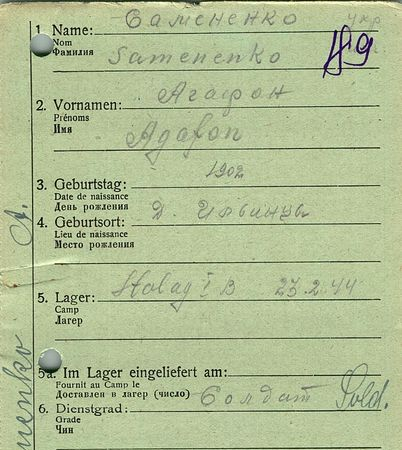 Самененко укр
1. Name:
Nom
Фамилия
Samenenko
Агафон
2. Vornamen:
Prénoms
Имя
Agafon
1902
3. Geburtstag:
Date de naissance
День рождения
4. Geburtsort: Д.
Lieu de naissance
Место рождения
5. Lager: Stalag I B 23.2.44
Camp
Лагер
5a. Im Lager eingeliefert am:
Fournit au Camp le
Доставлен в лагер (число)
6. Dienstgrad: Солдат Sold.
Grade
Чин
A.
nenko